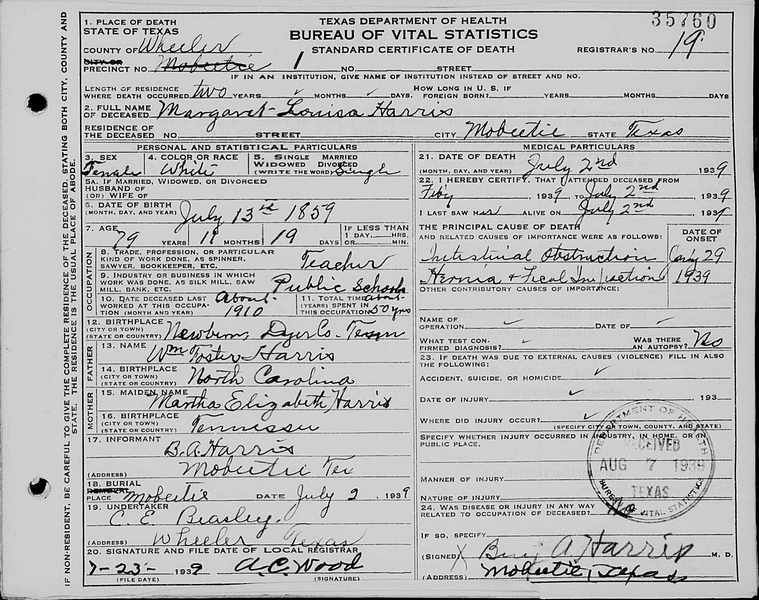 TEXAS DEPARTMENT OF HEALTH
BUREAU OF VITAL STATISTICS
STANDARD CERTIFICATE OF DEATH
35760
REGISTRAR'S NO. 19
1. PLACE OF DEATH
STATE OF TEXAS
COUNTY OF Wheeler
CITY OR
PRECINCT NO. Mobeetie 1 NO. STREET
IF IN AN INSTITUTION, GIVE NAME OF INSTITUTION INSTEAD OF STREET AND NO.
LENGTH OF RESIDENCE
WHERE DEATH OCCURRED two YEARS MONTHS DAYS. HOW LONG IN U. S. IF FOREIGN BORN? YEARS MONTHS DAYS
2. FULL NAME
OF DECEASED Margaret Louisa Harris
RESIDENCE OF
THE DECEASED NO. STREET CITY Mobeetie STATE Texas
PERSONAL AND STATISTICAL PARTICULARS
3. SEX Female
4. COLOR OR RACE White
5. SINGLE MARRIED
WIDOWED DIVORCED
(WRITE THE WORD) Single
5A. IF MARRIED, WIDOWED, OR DIVORCED
HUSBAND OF
(OR) WIFE OF
6. DATE OF BIRTH
(MONTH, DAY, AND YEAR) July 13th 1859
7. AGE
79 YEARS 11 MONTHS 19 DAYS
IF LESS THAN
1 DAY HRS.
OR MIN.
OCCUPATION
8. TRADE, PROFESSION, OR PARTICULAR
KIND OF WORK DONE, AS SPINNER,
SAWYER, BOOKKEEPER, ETC. Teacher
9. INDUSTRY OR BUSINESS IN WHICH
WORK WAS DONE, AS SILK MILL, SAW
MILL, BANK, ETC. Public Schools
10. DATE DECEASED LAST
WORKED AT THIS OCCUPATION
(MONTH AND YEAR) About 1910
11. TOTAL TIME
(YEARS) SPENT IN
THIS OCCUPATION about 50 yrs
12. BIRTHPLACE
(CITY OR TOWN)
(STATE OR COUNTRY) Newbern, Dyer Co. Tenn
FATHER
13. NAME
Wm Foster Harris
14. BIRTHPLACE
(CITY OR TOWN)
(STATE OR COUNTRY) North Carolina
MOTHER
15. MAIDEN NAME
Martha Elizabeth Harris
16. BIRTHPLACE
(CITY OR TOWN)
(STATE OR COUNTRY) Tennessee
17. INFORMANT
B. A. Harris
(ADDRESS) Mobeetie Tex
18. BURIAL
PLACE Mobeetie DATE July 2, 1939
19. UNDERTAKER
C. E. Beasley
(ADDRESS) Wheeler Texas
20. SIGNATURE AND FILE DATE OF LOCAL REGISTRAR
7-23- 1939 A.C. Wood
(FILE DATE) (SIGNATURE)
MEDICAL PARTICULARS
21. DATE OF DEATH
(MONTH, DAY, AND YEAR) July 2nd 1939
22. I HEREBY CERTIFY, THAT I ATTENDED DECEASED FROM
1939 TO July 2nd 1939
I LAST SAW HER ALIVE ON July 2nd 1939
THE PRINCIPAL CAUSE OF DEATH
AND RELATED CAUSES OF IMPORTANCE WERE AS FOLLOWS:
DATE OF
ONSET
Intestinal Obstruction
29
Hernia & Fecal Impaction
1939
OTHER CONTRIBUTORY CAUSES OF IMPORTANCE:
NAME OF
OPERATION DATE OF
WHAT TEST CONFIRMED DIAGNOSIS? WAS THERE
AN AUTOPSY? No
23. IF DEATH WAS DUE TO EXTERNAL CAUSES (VIOLENCE) FILL IN ALSO
THE FOLLOWING:
ACCIDENT, SUICIDE, OR HOMICIDE
DATE OF INJURY 193
WHERE DID INJURY OCCUR?
(SPECIFY CITY OR TOWN, COUNTY, AND STATE)
SPECIFY WHETHER INJURY OCCURRED IN INDUSTRY, IN HOME, OR IN
PUBLIC PLACE.
MANNER OF INJURY
NATURE OF INJURY
24. WAS DISEASE OR INJURY IN ANY WAY
RELATED TO OCCUPATION OF DECEASED? No
IF SO, SPECIFY
(SIGNED) X Benj A Harris M. D.
(ADDRESS) Mobeetie, Texas
DEPARTMENT OF HEALTH
RECEIVED
AUG 7 1939
TEXAS
BUREAU OF VITAL STATISTICS
IF NON-RESIDENT, BE CAREFUL TO GIVE THE COMPLETE RESIDENCE OF THE DECEASED, STATING BOTH CITY, COUNTY AND
STATE. THE RESIDENCE IS THE USUAL PLACE OF ABODE.